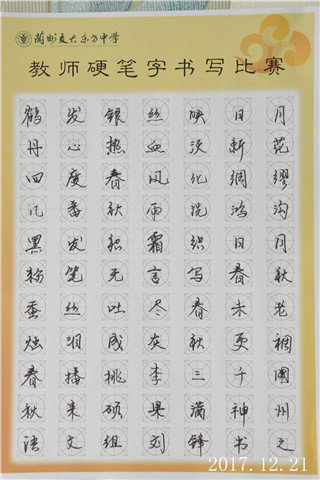 兰州交大东方中学
教师硬笔字书写比赛
鹤发银丝映日月
丹心热血沃新花
四度春风化绸缪
几番秋雨洗鸿沟
黑发积霜织日月
粉笔无言写春秋
蚕丝吐尽春未老
烛泪成灰秋更稠
春播桃李三千圃
秋来硕果满神州
语文组 刘锋书之
2017.12.21